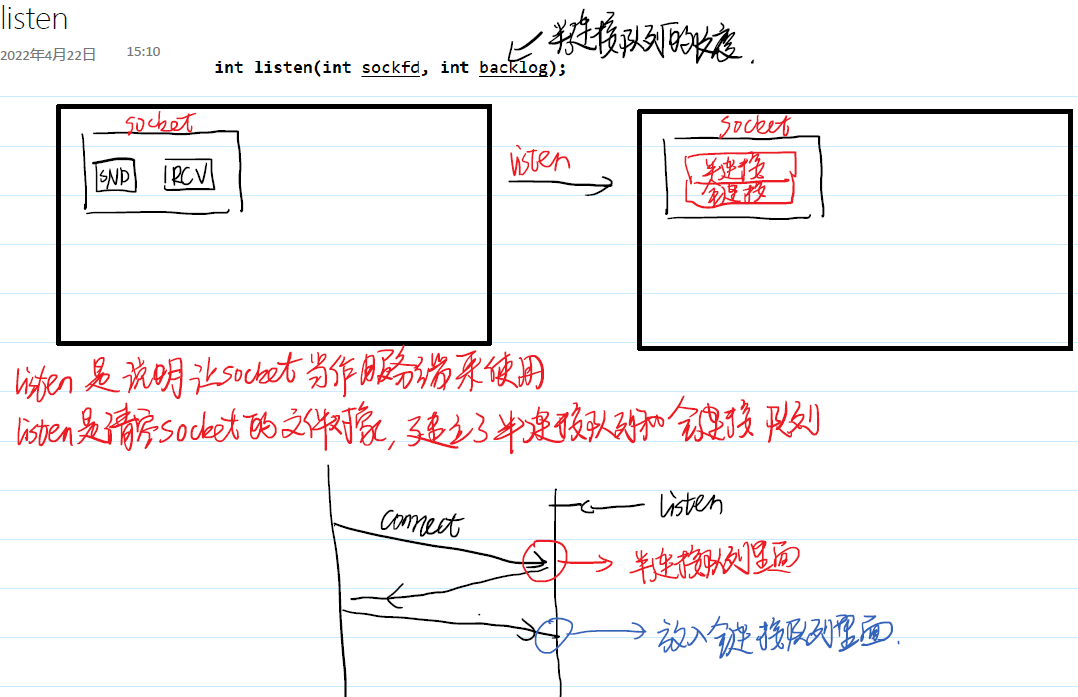 listen
2022年4月22日 15:10
半连接队列的长度.
int listen(int sockfd, int backlog);
socket
SND RCV
listen
socket
半连接
全连接
listen是说明让socket当作服务端来使用
listen是清空socket的文件对象,建立了半连接队列和全连接队列
connect
listen
半连接队列里面
放入全连接队列里面.